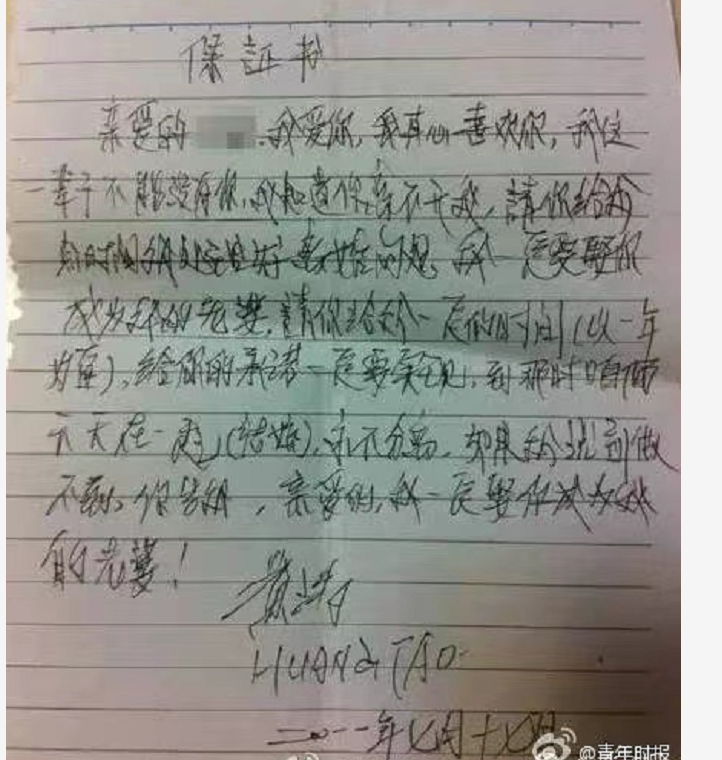 保証书
亲爱的 我爱你,我真心喜欢你,我这
一辈子不能没有你,我知道你离不开我,請你给我
点时间我处理好离婚问题,我一定要娶你
成为我的老婆,請你给我一定的时间(以一年
为直),给你的承诺一定要实现,到那时咱俩
天天在一起(结婚),永不分离,如果我说到做
不到,你告我,亲爱的,我一定娶你成为我
的老婆!
黄涛
HUANG TAO
二〇一一年七月十七日
@青年时报